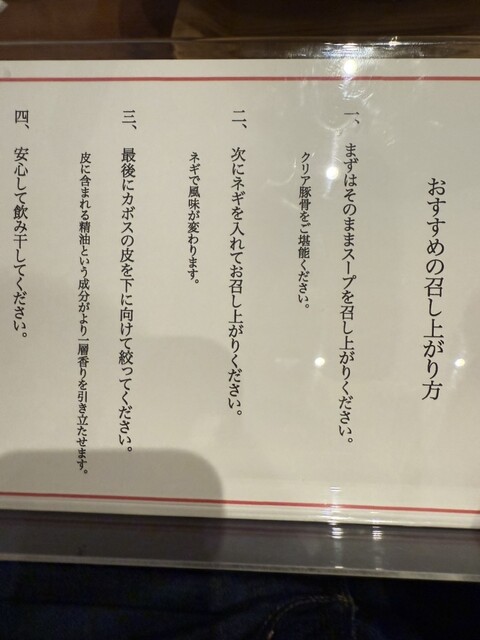 おすすめの召し上がり方
一、まずはそのままスープを召し上がりください。
クリア豚骨をご堪能ください。
二、次にネギを入れてお召し上がりください。
ネギで風味が変わります。
三、最後にカボスの皮を下に向けて絞ってください。
皮に含まれる精油という成分がより一層香りを引き立たせます。
四、安心して飲み干してください。